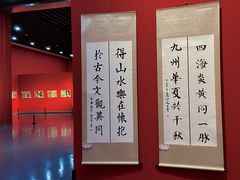 四海炎黄同一脉
九州华夏共千秋
得山水樂在懷抱
於古今文觀異同